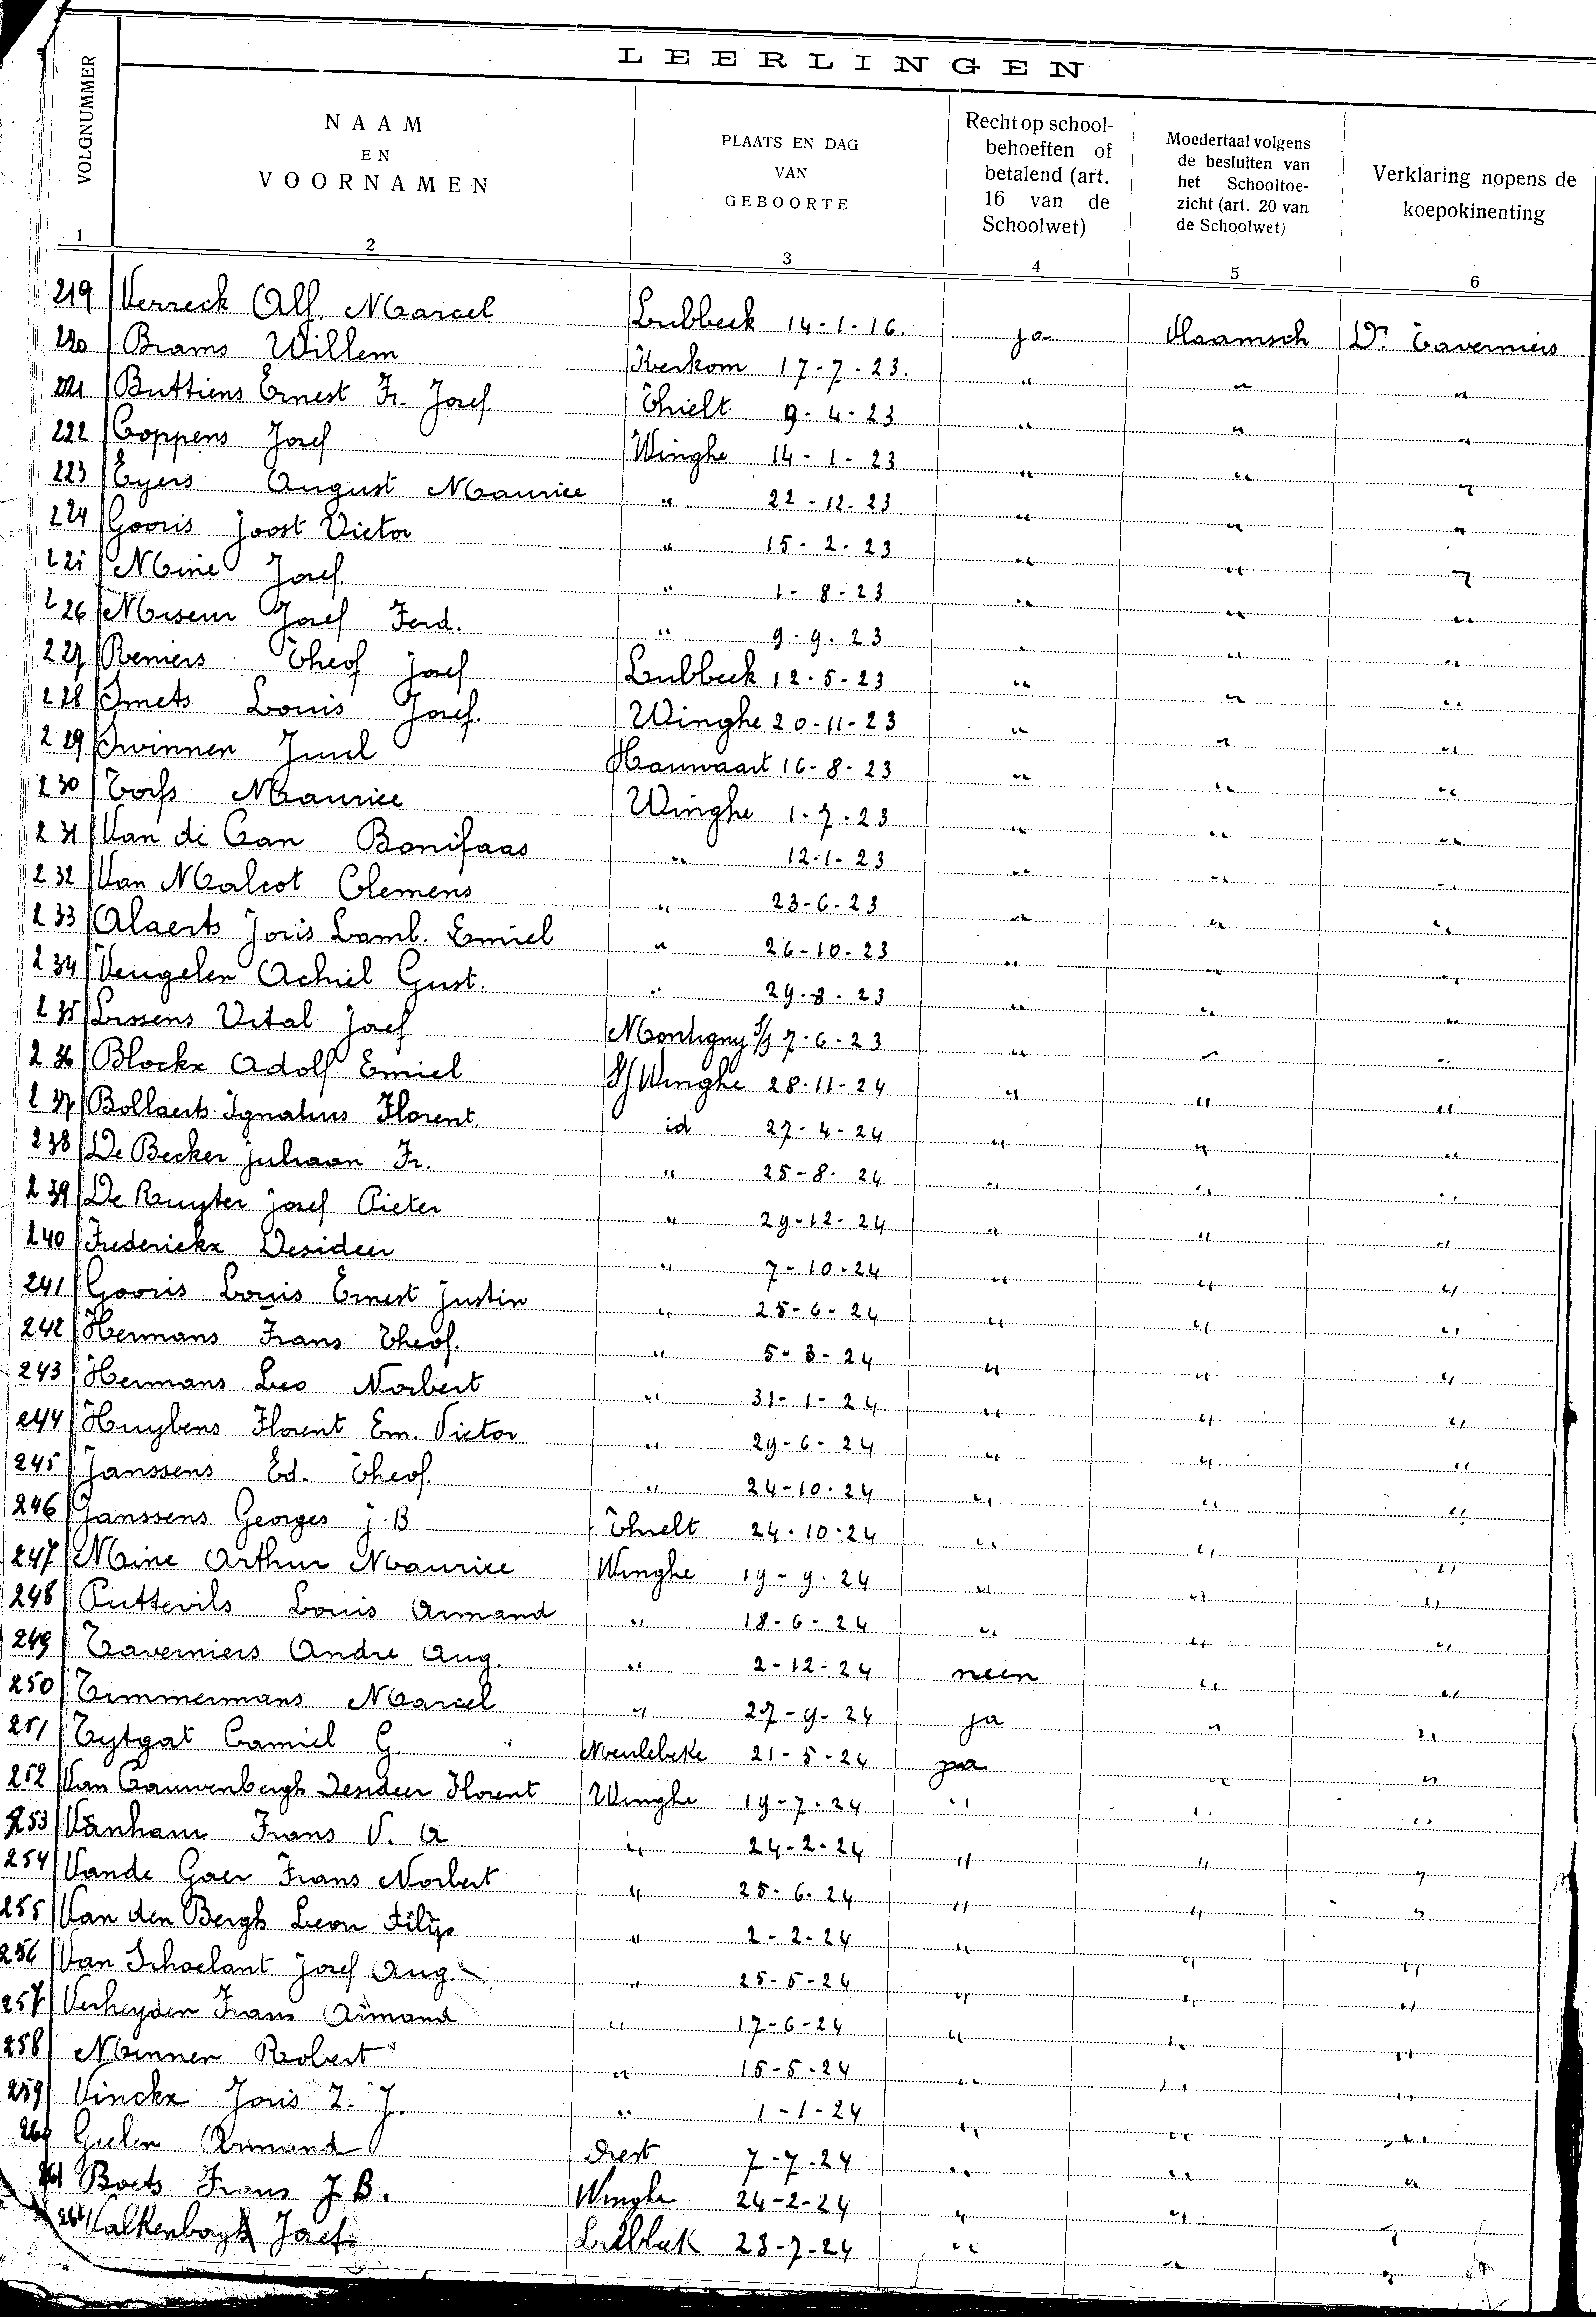 LEERLINGEN
VOLGNUMMER
NAAM
EN
VOORNAMEN
PLAATS EN DAG
VAN
GEBOORTE
Recht op school-
behoeften of
betalend (art.
16 van de
Schoolwet)
Moedertaal volgens
de besluiten van
het Schooltoe-
zicht (art. 20 van
de Schoolwet)
Verklaring nopens de
koepokinenting
1 2 3 4 5 6
219 Verreck Alf. Marcel Lubbeek 14-1-16. ja Vlaamsch Dr Taverniers
220 Brams Willem Kerkom 17-7-23. " " "
221 Buttiens Ernest Fr. Josef. Thielt 9-4-23 " " "
222 Coppens Josef Winghe 14-1-23 " " "
223 Eyers August Maurice " 22-12-23 " " "
224 Gooris Joost Victor " 15-2-23 " " "
225 Miné Josef " 1-8-23 " " "
226 Miseur Josef Ferd. " 9-9-23 " " "
227 Reniers Theof Josef Lubbeek 12-5-23 " " "
228 Smets Louis Josef. Winghe 20-11-23 " " "
229 Swinnen Juul Hauwaart 16-8-23 " " "
230 Torfs Maurice Winghe 1-7-23 " " "
231 Van de Gan Bonifaas " 12-1-23 " " "
232 Van Malcot Clemens " 23-6-23 " " "
233 Alaerts Joris Lamb. Emiel " 26-10-23 " " "
234 Veugelen Achiel Gust. " 29-8-23 " " "
235 Lissens Vital Josef Montigny S/S 7-6-23 " " "
236 Blockx Adolf Emiel S/ Winghe 28-11-24 " " "
237 Bollaerts Ignatius Florent. id 27-4-24 " " "
238 De Becker Juliaan Fr. " 25-8-24 " " "
239 De Ruyter Josef Pieter " 29-12-24 " " "
240 Frederickx Desideer " 7-10-24 " " "
241 Gooris Louis Ernest Justin " 25-6-24 " " "
242 Hermans Frans Theof. " 5-3-24 " " "
243 Hermans Leo Norbert " 31-1-24 " " "
244 Huybens Florent Em. Victor " 29-6-24 " " "
245 Janssens Ed. Theof. " 24-10-24 " " "
246 Janssens Georges J.B Thielt 24-10-24 " " "
247 Mine Arthur Maurice Winghe 19-9-24 " " "
248 Puttevils Louis Armand " 18-6-24 " " "
249 Taverniers Andre Aug. " 2-12-24 neen " "
250 Timmermans Marcel " 27-9-24 ja " "
251 Tytgat Camiel G. Meulebeke 21-5-24 ja " "
252 Van Cauwenbergh Desideer Florent Winghe 19-7-24 " " "
253 Vanham Frans V. A " 24-2-24 " " "
254 Vande Gaer Frans Norbert " 25-6-24 " " "
255 Van den Bergh Leon Filip " 2-2-24 " " "
256 Van Schoelant Josef Aug. " 25-5-24 " " "
257 Verheyden Frans Armand " 17-6-24 " " "
258 Minnen Robert " 15-5-24 " " "
259 Vinckx Joris Z. J. " 1-1-24 " " "
260 Gielen Armand Diest 7-7-24 " " "
261 Boets Frans J.B. Winghe 24-2-24 " " "
262 Valkenborgh Josef Lubbeek 23-7-24 " " "